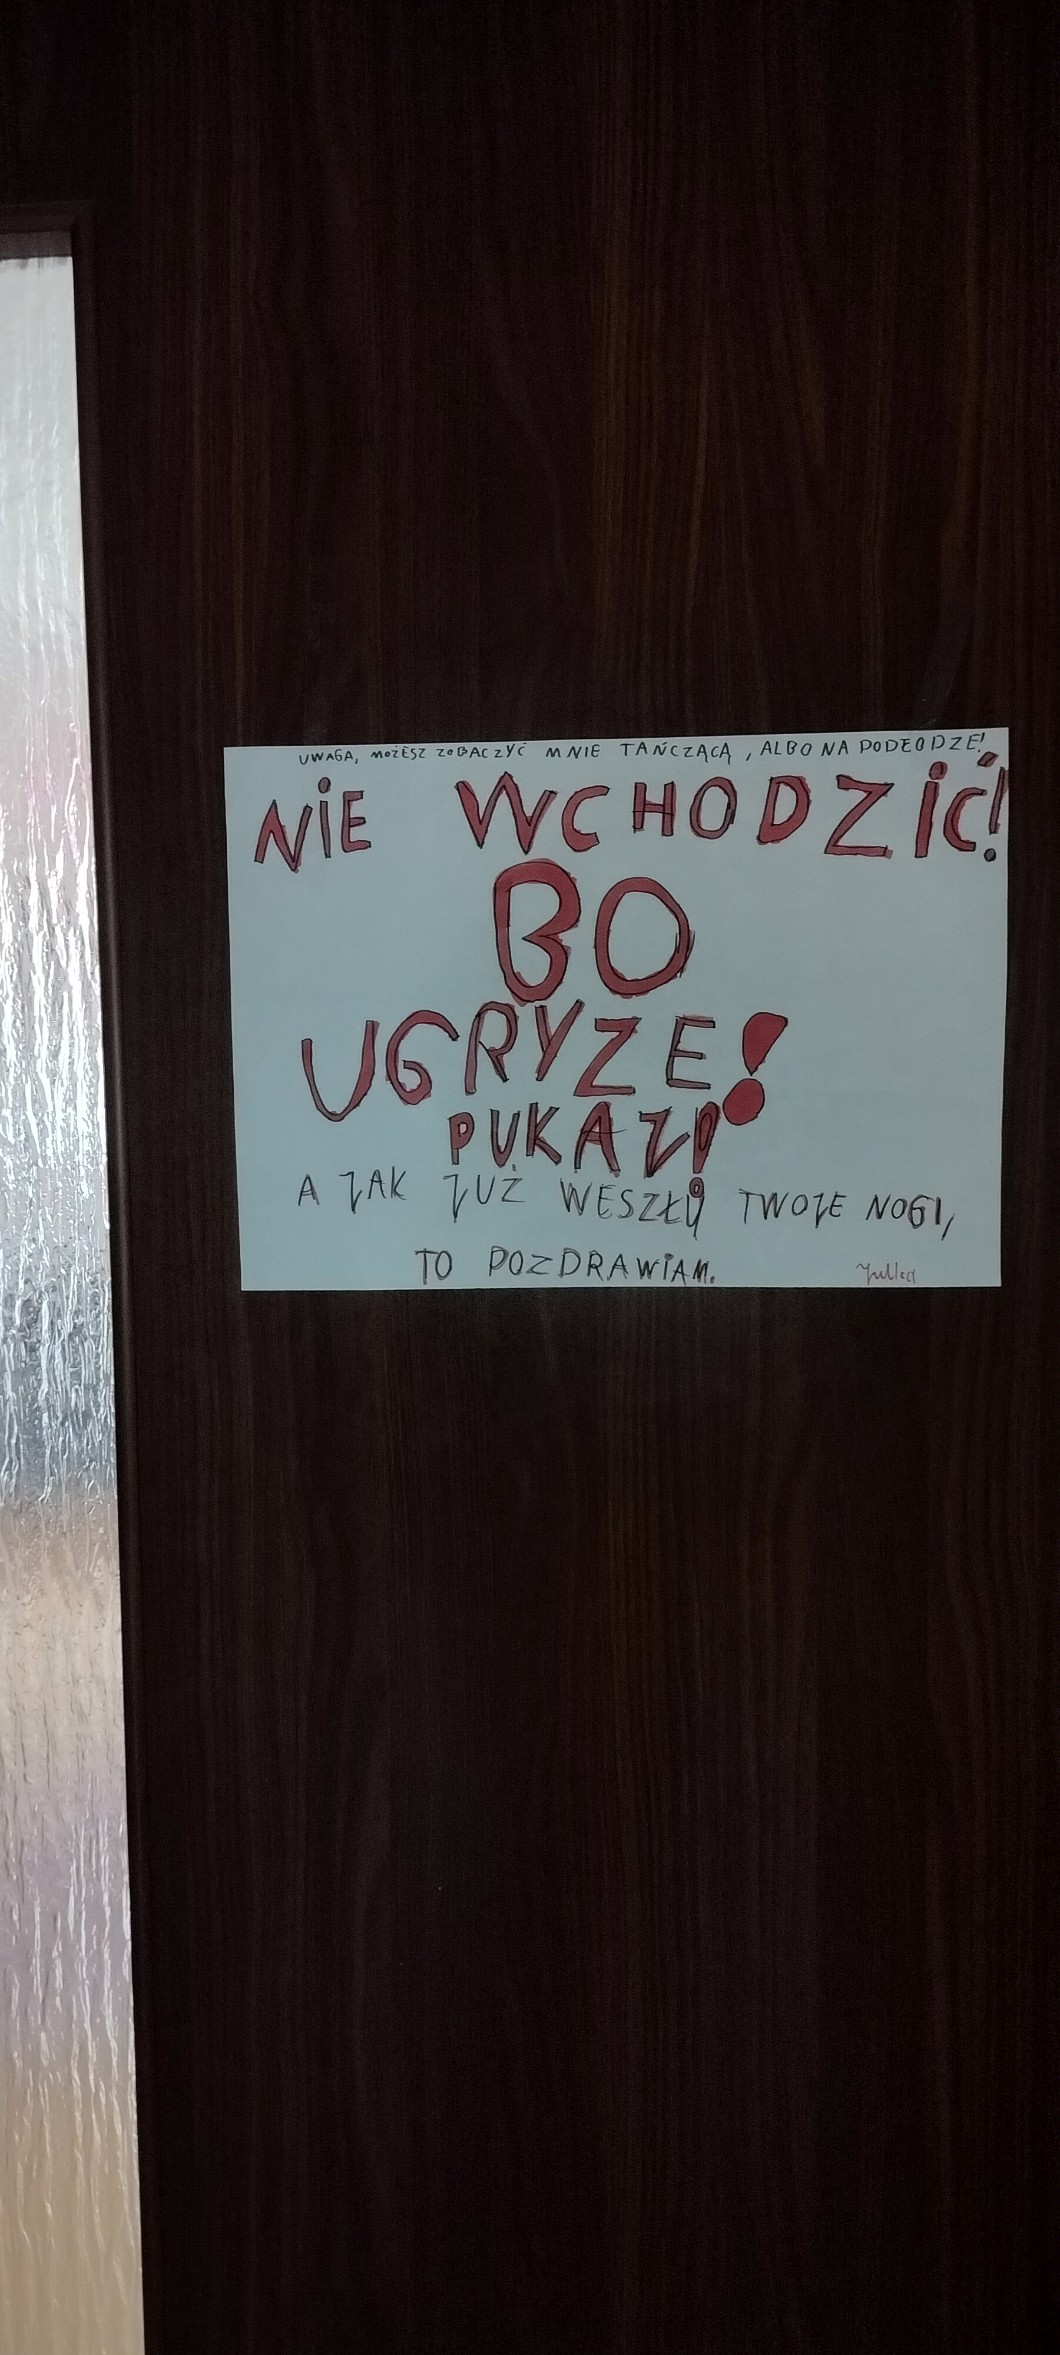 UWAGA, MOŻESZ ZOBACZYĆ MNIE TAŃCZĄCĄ, ALBO NA PODŁODZE!
NIE WCHODZIĆ!
BO
UGRYZE!
PUKAJ!
A JAK JUŻ WESZŁY TWOJE NOGI,
TO POZDRAWIAM.
Julka